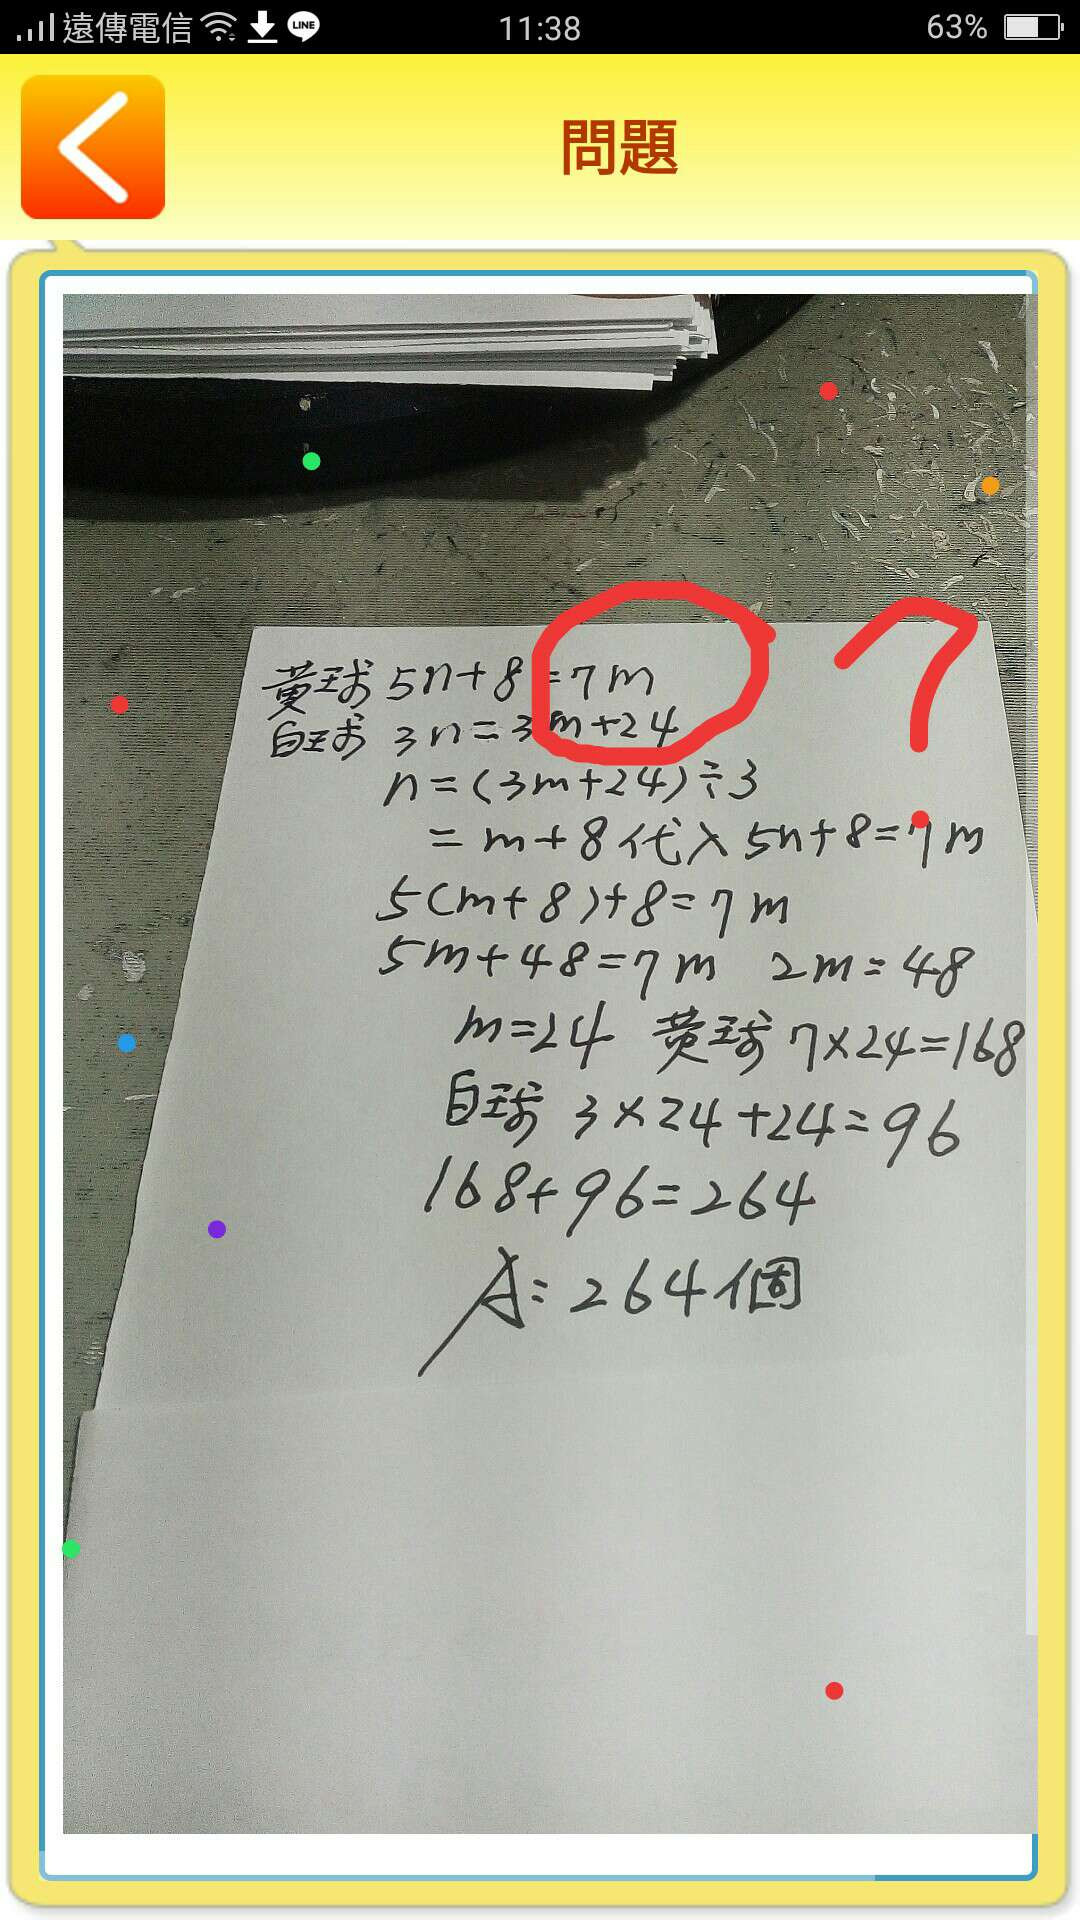 遠傳電信 LINE 11:38 63%
問題
黃球 5n+8=7m
白球 3n=3m+24
n=(3m+24)÷3
=m+8 代入 5n+8=7m
5(m+8)+8=7m
5m+48=7m 2m=48
m=24 黃球 7×24=168
白球 3×24+24=96
168+96=264
A:264個
?